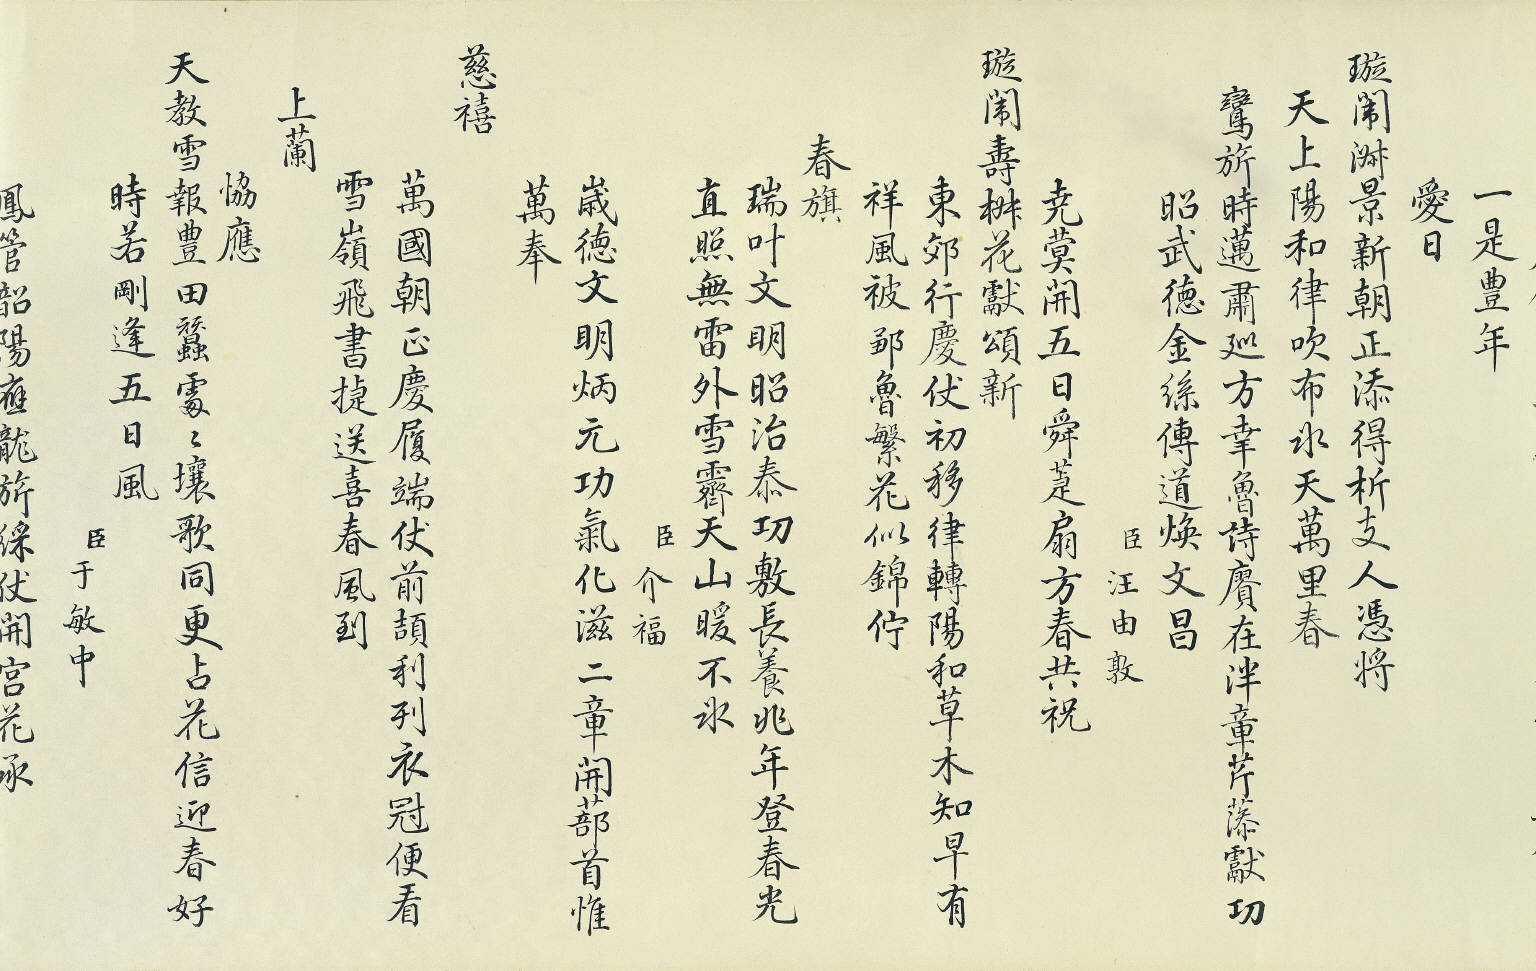 一是豊年
愛日
璇閣淑景新朝正添得析支人憑將
天上陽和律吹布氷天萬里春
鸞旂時邁肅廵方幸魯詩賡在泮章芹藻獻功
昭武德金絲傳道煥文昌
臣汪由敦
堯蓂開五日舜萐扇方春共祝
璇闈壽椒花獻頌新
東郊行慶伏初移律轉陽和草木知早有
祥風被鄒魯繁花似錦佇
春旗
瑞叶文明昭治泰功敷長養兆年登春光
直照無雷外雪霽天山暖不氷
臣介福
歲德文明炳元功氣化滋二章開蔀首惟
萬奉
慈禧
萬國朝正慶履端仗前頡利列衣冠便看
雪嶺飛書捷送喜春風到
上蘭
恊應
天教雪報豊田蠶霡〻壤歌同更占花信迎春好
時若剛逢五日風
臣于敏中
鳳管韶陽應龍旂綵仗開宮花承